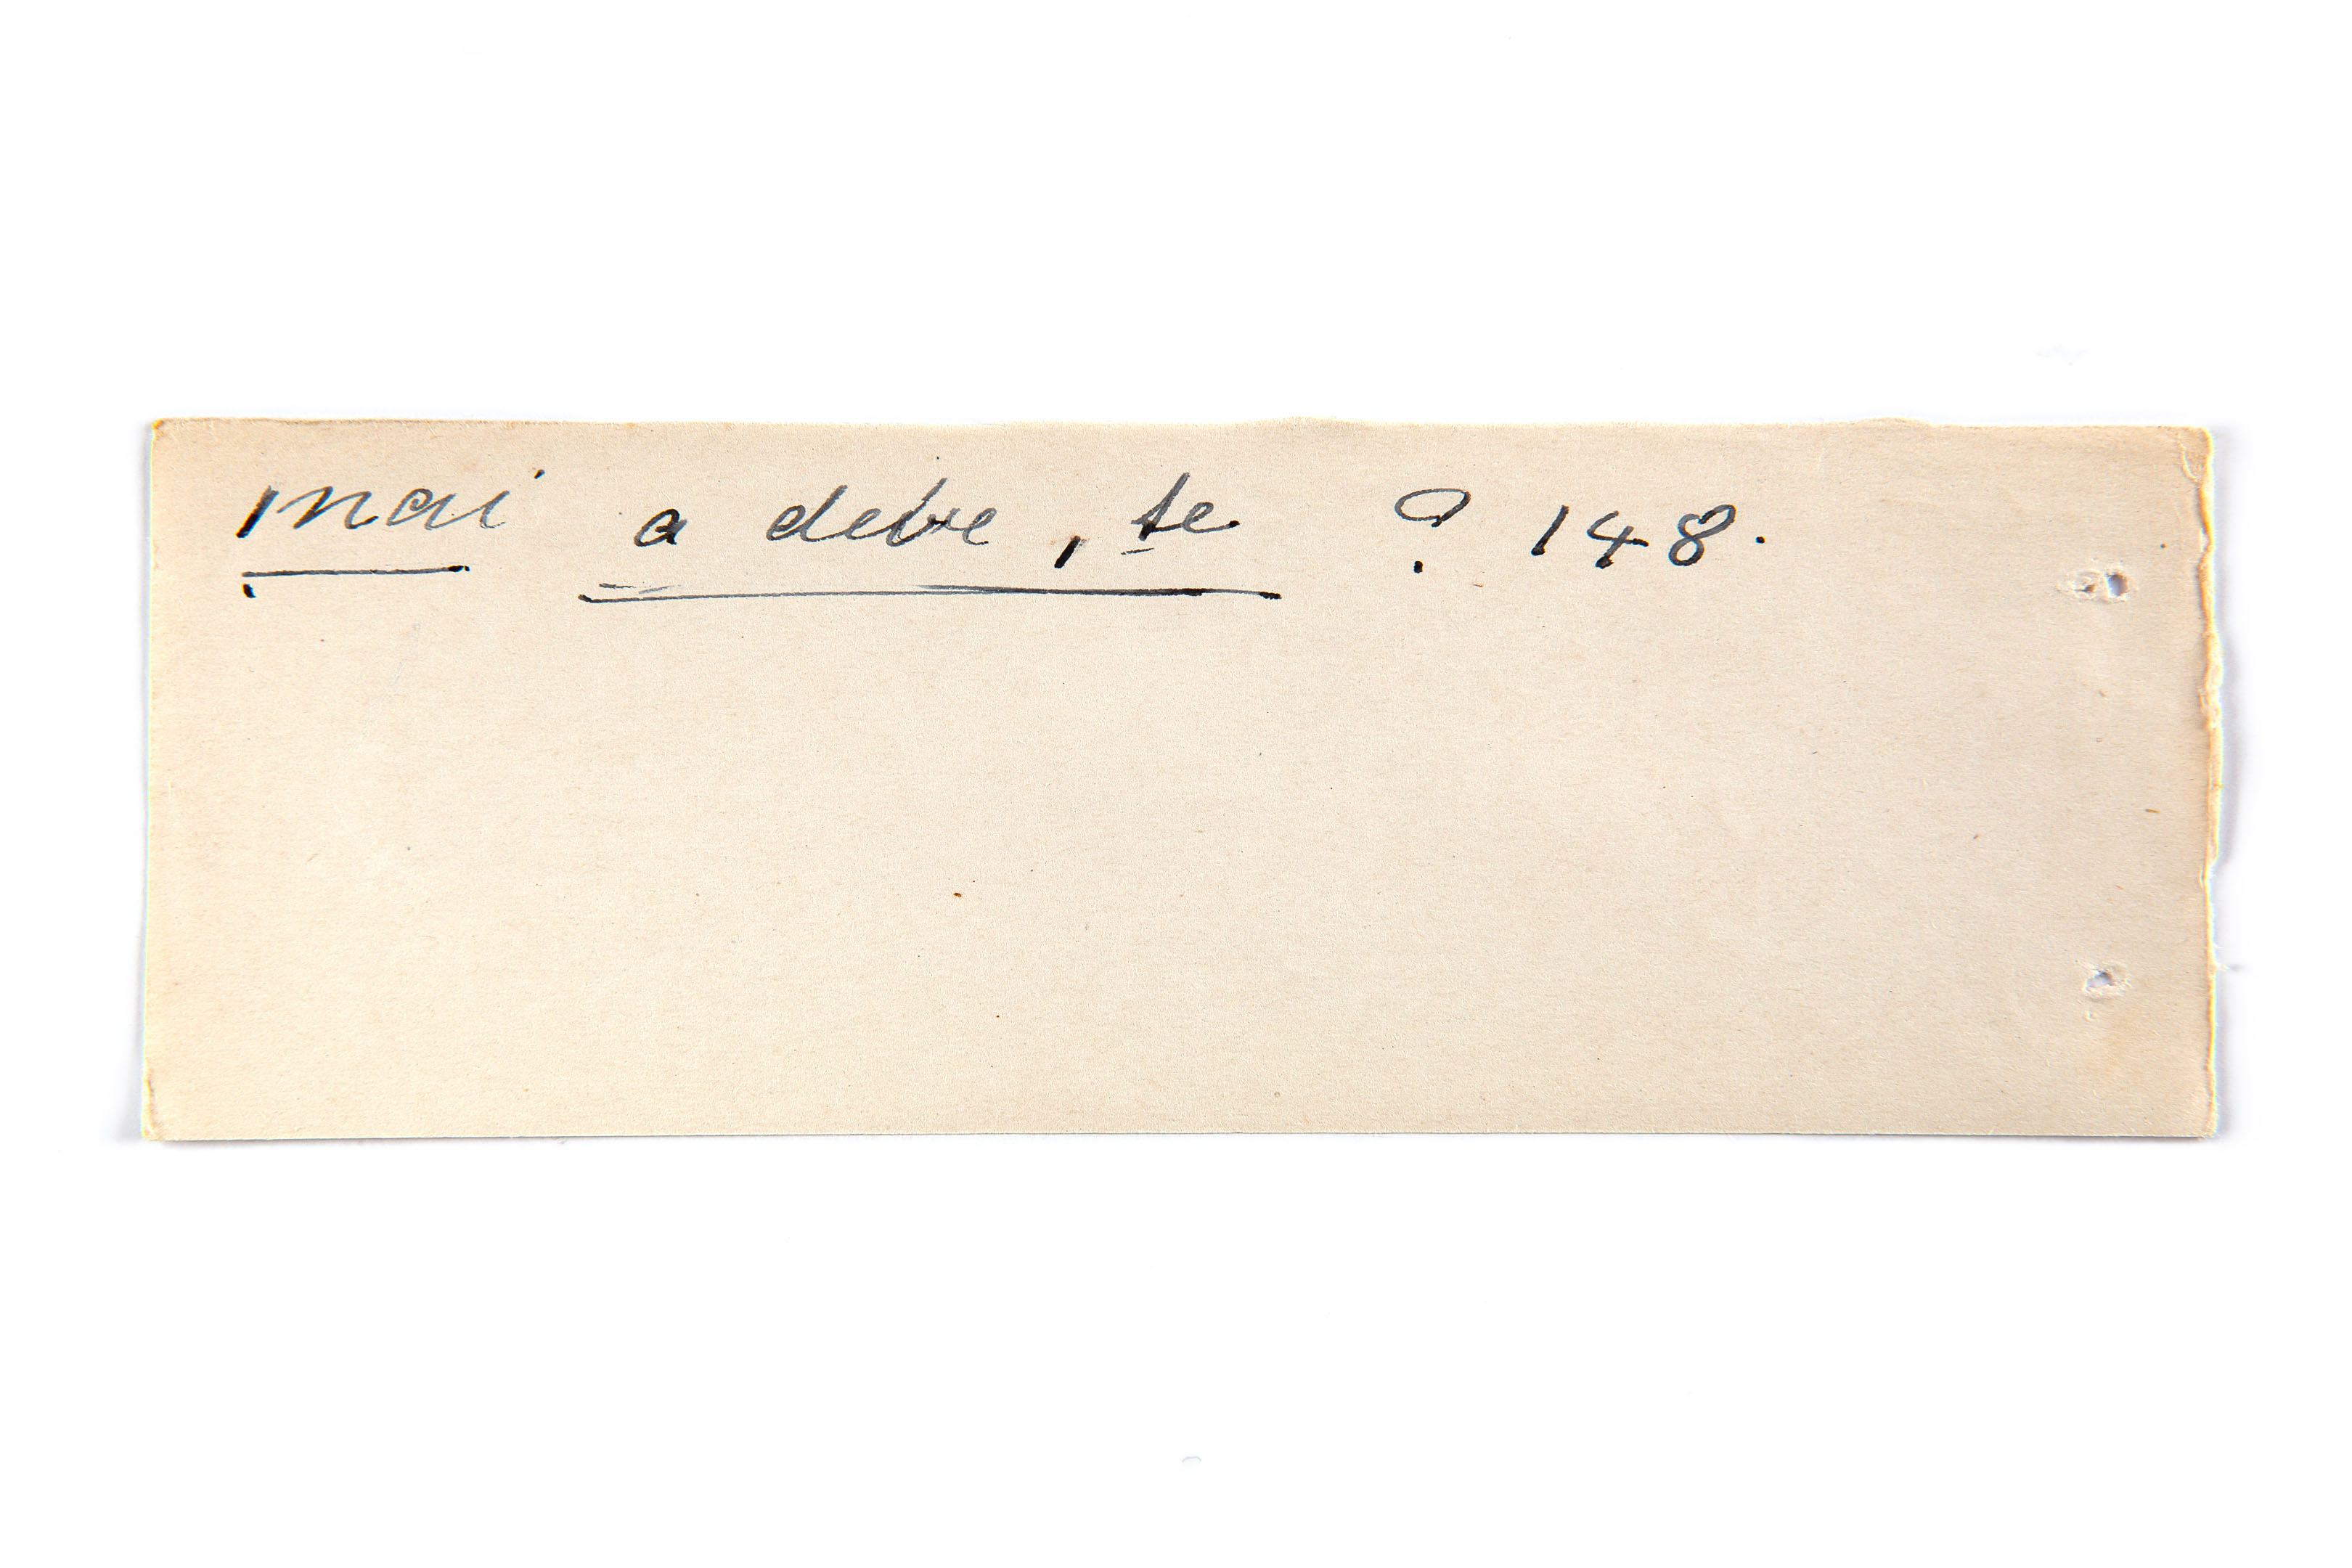 mai a debe, te ? 148.